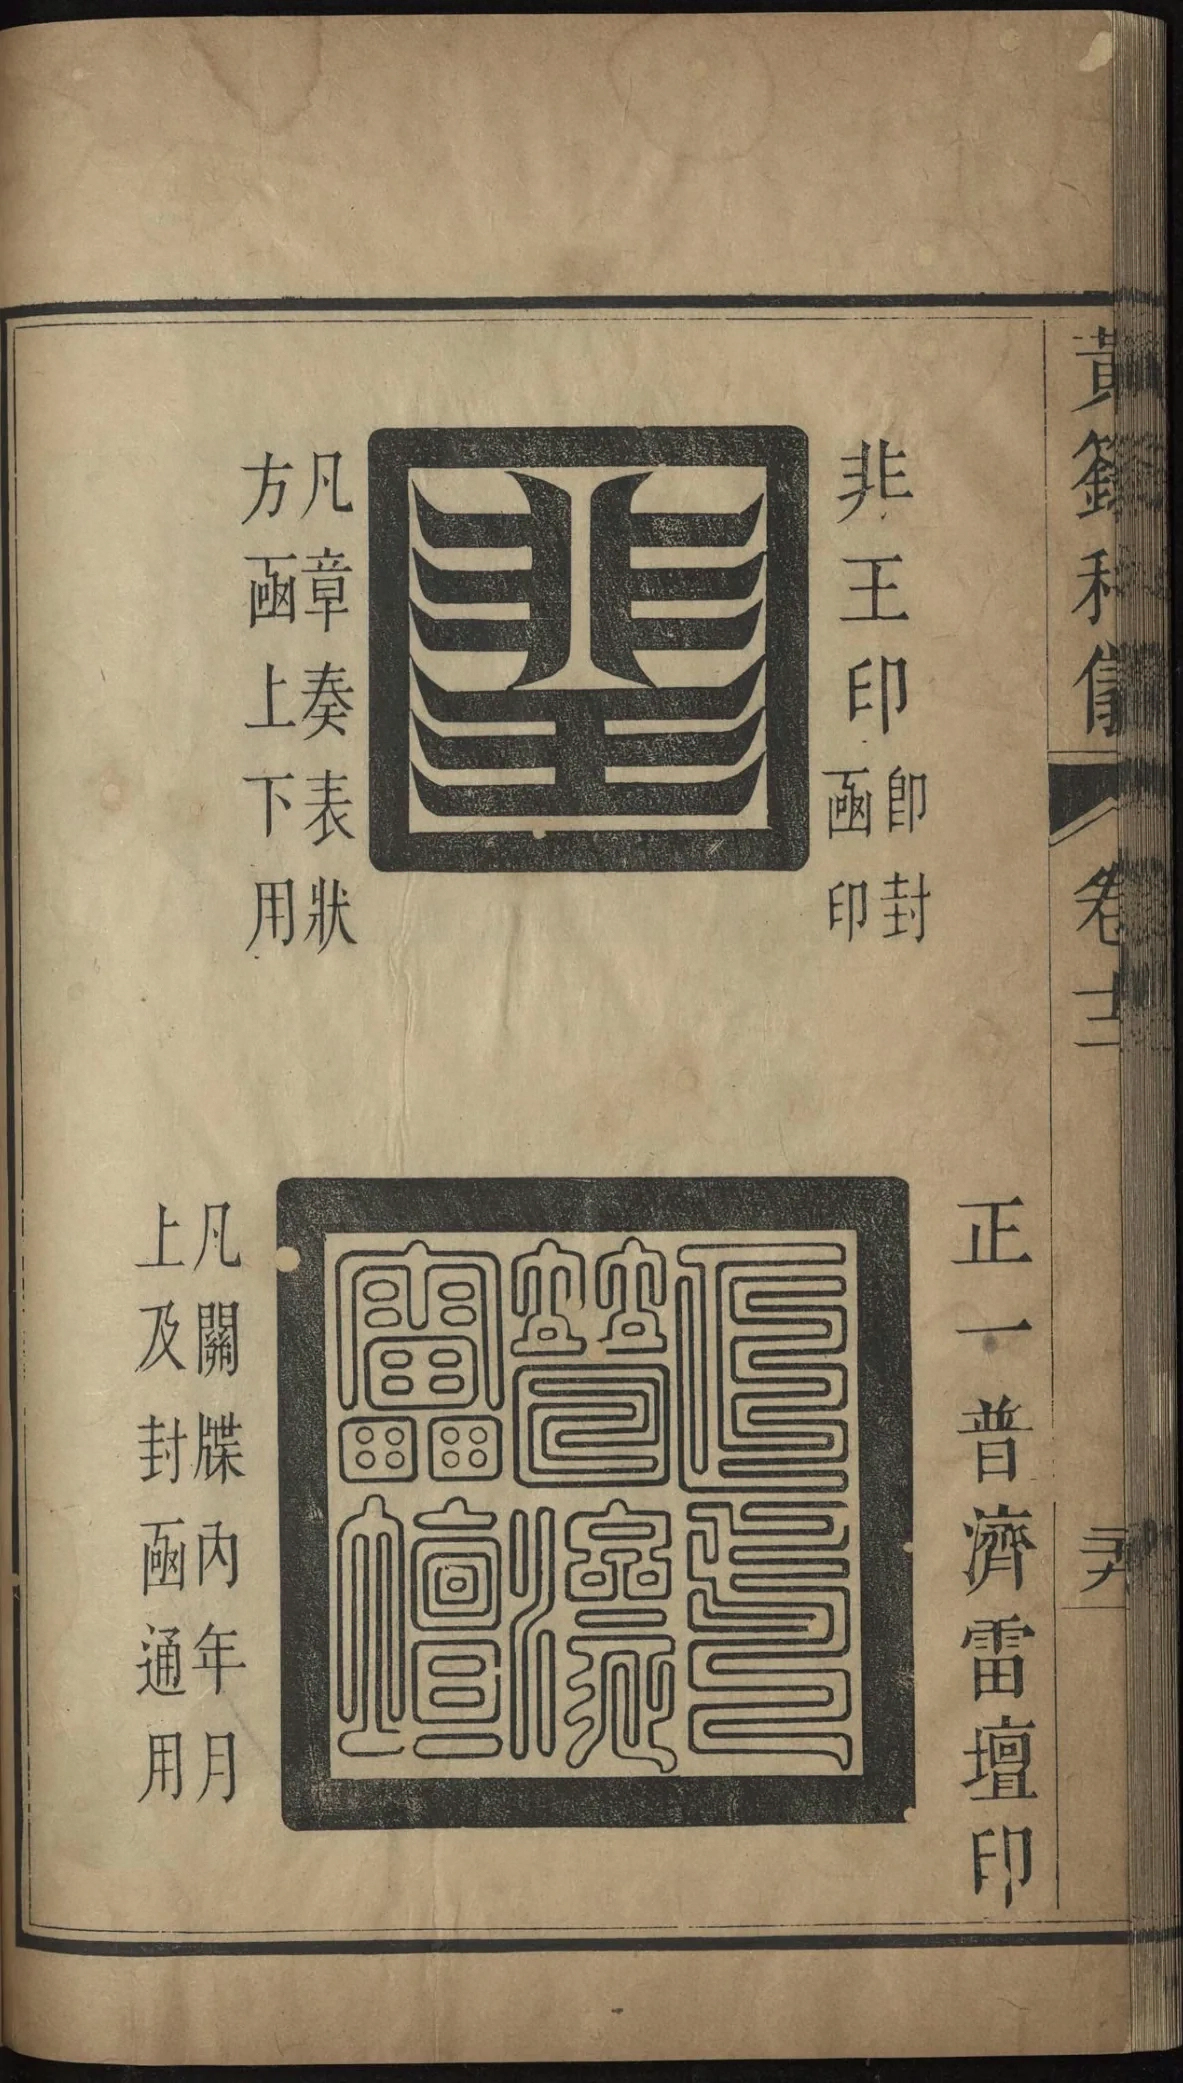 黃籙科儀
卷十二
非王印
卽封
凾印
凡章奏表狀
方凾上下用
正一普濟雷壇印
凡關牒內年月
上及封凾通用